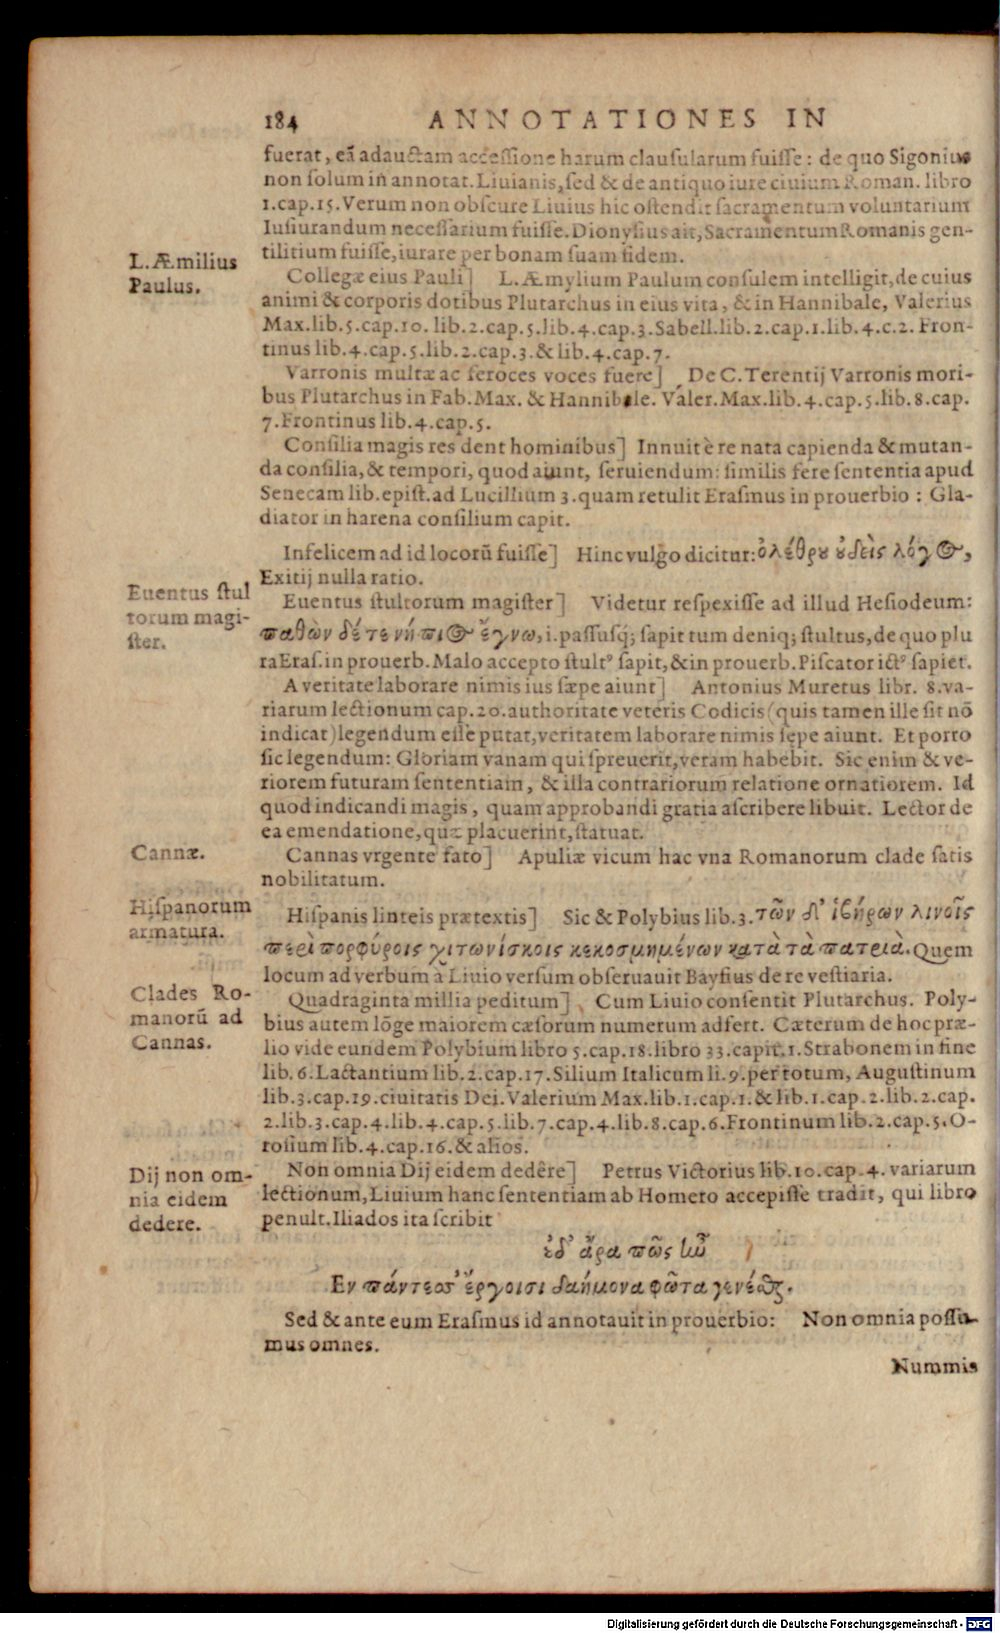 184 ANNOTATIONES IN
fuerat, eā adauctam accessione harum clausularum fuisse: de quo Sigonius
non solum in annotat. Liuianis, sed & de antiquo iure ciuium Roman. libro
1. cap. 15. Verum non obscure Liuius hic ostendit sacramentum voluntarium
Iusiurandum necessarium fuisse. Dionysius ait, Sacramentum Romanis gen-
tilitium fuisse, iurare per bonam suam fidem.
L. Æmilius
Paulus.
Collegæ eius Pauli] L. Æmylium Paulum consulem intelligit, de cuius
animi & corporis dotibus Plutarchus in eius vita, & in Hannibale, Valerius
Max. lib. 5. cap. 10. lib. 2. cap. 5. lib. 4. cap. 3. Sabell. lib. 2. cap. 1. lib. 4. c. 2. Fron-
tinus lib. 4. cap. 5. lib. 2. cap. 3. & lib. 4. cap. 7.
Varronis multæ ac feroces voces fuere] De C. Terentij Varronis mori-
bus Plutarchus in Fab. Max. & Hannibale. Valer. Max. lib. 4. cap. 5. lib. 8. cap.
7. Frontinus lib. 4. cap. 5.
Consilia magis res dent hominibus] Innuit è re nata capienda & mutan-
da consilia, & tempori, quod aiunt, seruiendum: similis fere sententia apud
Senecam lib. epist. ad Lucillium 3. quam retulit Erasmus in prouerbio: Gla-
diator in harena consilium capit.
Infelicem ad id locorū fuisse] Hinc vulgo dicitur: ὀλέθρου οὐδεὶς λόγος,
Exitij nulla ratio.
Euentus stul
torum magi-
ster.
Euentus stultorum magister] Videtur respexisse ad illud Hesiodeum:
παθὼν δέ τε νήπιος ἔγνω, i. passusq́; sapit tum deniq; stultus, de quo plu
ra Eras. in prouerb. Malo accepto stultꝰ sapit, & in prouerb. Piscator ictꝰ sapiet.
A veritate laborare nimis ius sæpe aiunt] Antonius Muretus libr. 8. va-
riarum lectionum cap. 20. authoritate veteris Codicis (quis tamen ille sit nō
indicat) legendum esse putat, veritatem laborare nimis sępe aiunt. Et porro
sic legendum: Gloriam vanam qui spreuerit, veram habebit. Sic enim & ve-
riorem futuram sententiam, & illa contrariorum relatione ornatiorem. Id
quod indicandi magis, quam approbandi gratia ascribere libuit. Lector de
ea emendatione, quæ placuerint, statuat.
Cannæ.
Cannas vrgente fato] Apuliæ vicum hac vna Romanorum clade satis
nobilitatum.
Hispanorum
armatura.
Hispanis linteis prætextis] Sic & Polybius lib. 3. τῶν δ' ἰβήρων λινοῖς
περὶ πορφύροις χιτωνίσκοις κεκοσμημένων κατὰ τὰ πατριὰ. Quem
locum ad verbum à Liuio versum obseruauit Bayfius de re vestiaria.
Clades Ro-
manorū ad
Cannas.
Quadraginta millia peditum] Cum Liuio consentit Plutarchus. Poly-
bius autem lōge maiorem cæsorum numerum adfert. Cæterum de hoc præ-
lio vide eundem Polybium libro 5. cap. 18. libro 33. capit. 1. Strabonem in fine
lib. 6. Lactantium lib. 2. cap. 17. Silium Italicum li. 9. per totum, Augustinum
lib. 3. cap. 19. ciuitatis Dei. Valerium Max. lib. 1. cap. 1. & lib. 1. cap. 2. lib. 2. cap.
2. lib. 3. cap. 4. lib. 4. cap. 5. lib. 7. cap. 4. lib. 8. cap. 6. Frontinum lib. 2. cap. 5. O-
rosium lib. 4. cap. 16. & alios.
Dij non om-
nia eidem
dedere.
Non omnia Dij eidem dedêre] Petrus Victorius lib. 10. cap. 4. variarum
lectionum, Liuium hanc sententiam ab Homero accepisse tradit, qui libro
penult. Iliados ita scribit
οὐδ' ἄρα πῶς ἦν
Εν πάντεσσ' ἔργοισι δαήμονα φῶτα γενέσθαι.
Sed & ante eum Erasmus id annotauit in prouerbio: Non omnia possu-
mus omnes.
Nummis
Digitalisierung gefördert durch die Deutsche Forschungsgemeinschaft - DFG